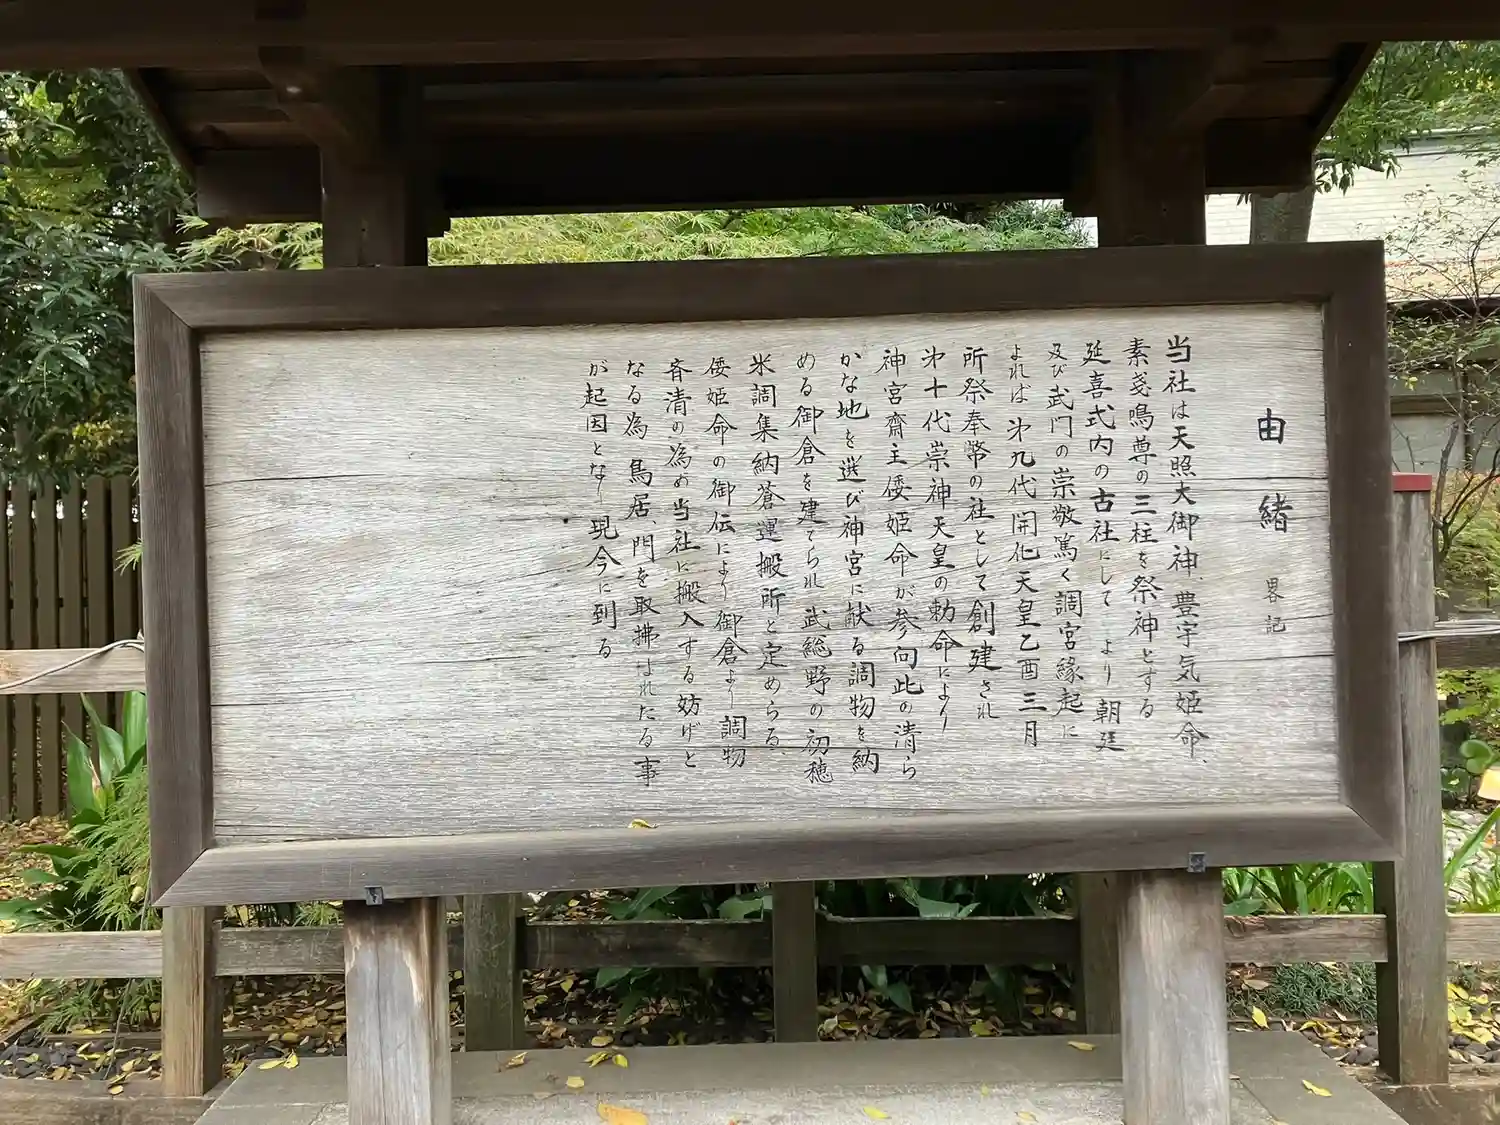 由緒 畧記
当社は天照大御神、豊宇気姫命、
素戔鳴尊の三柱を祭神とする
延喜式内の古社にして より 朝廷
及び武門の崇敬篤く調宮縁起に
よれば 第九代 開化天皇乙酉三月
所祭奉幣の社として創建され
第十代崇神天皇の勅命により
神宮齋主倭姫命が参向此の清ら
かな地を選び神宮に献る調物を納
める御倉を建てられ 武総野の初穂
米調集納蒼運搬所と定めらる、
倭姫命の御伝により御倉より調物
斉清の為め当社に搬入する妨げと
なる為 鳥居、門を取拂はれたる事
が起因となり現今に到る